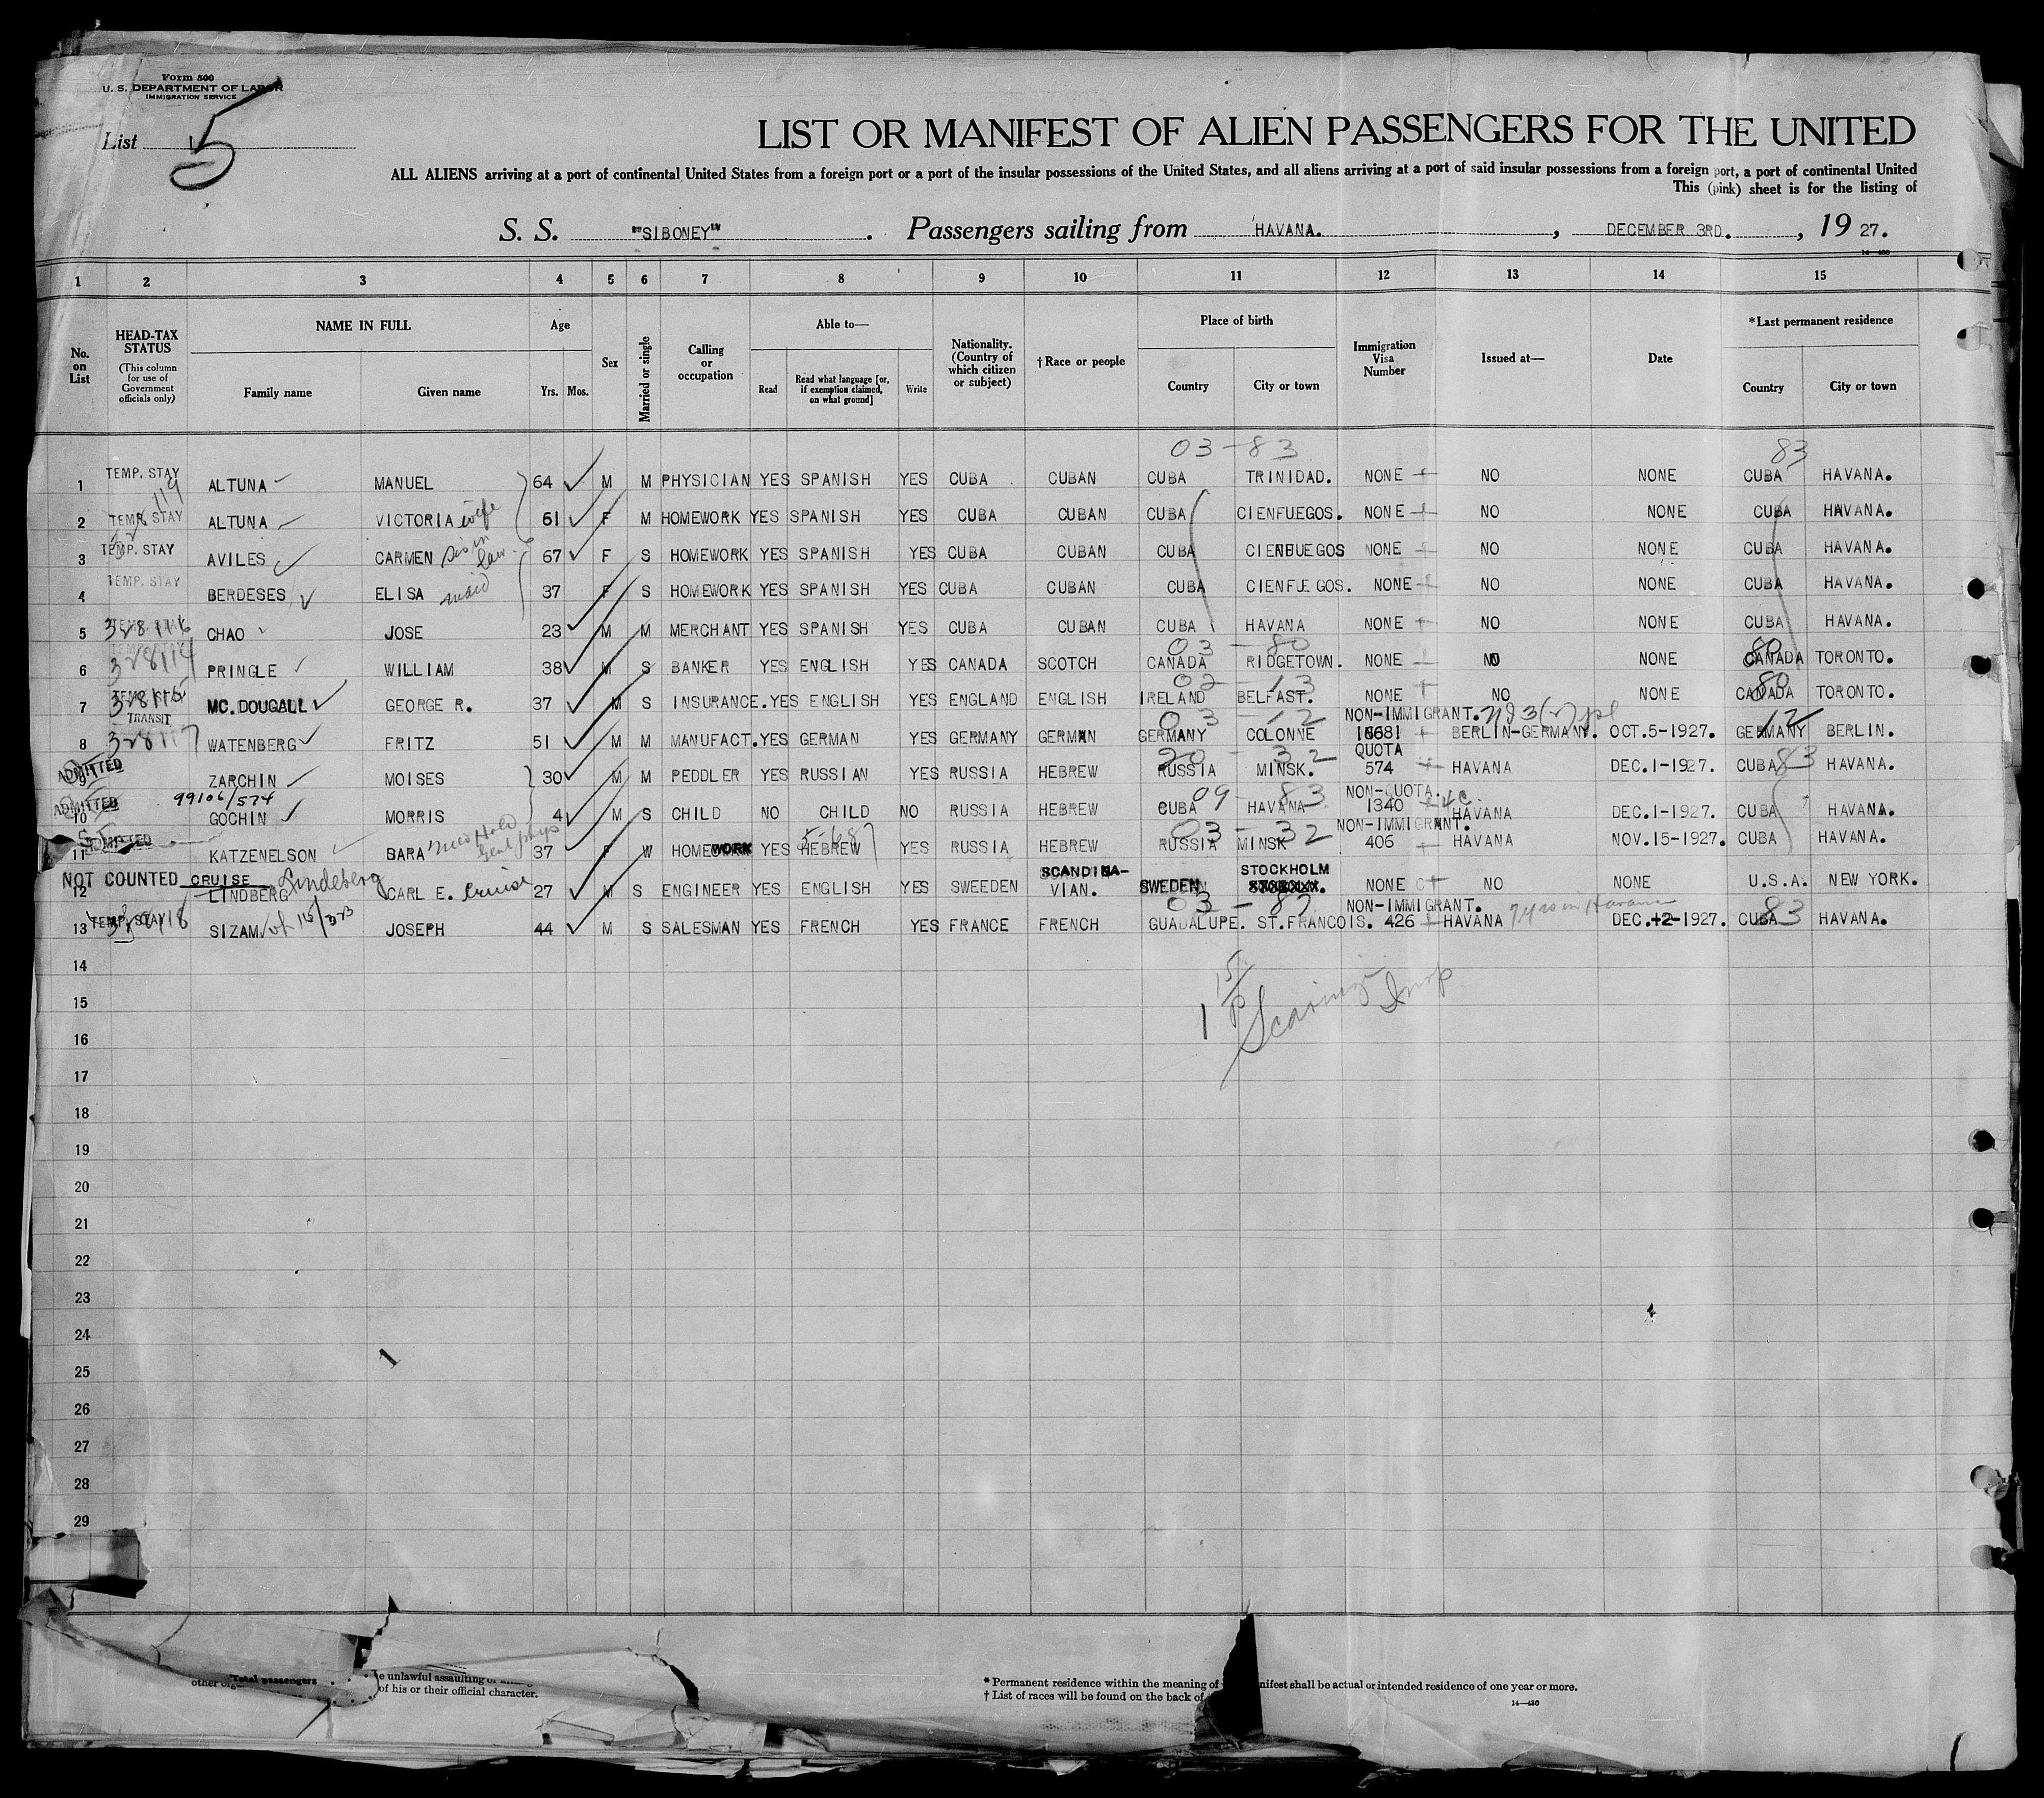 Form 500
U. S. DEPARTMENT OF LABOR
IMMIGRATION SERVICE
List 5
LIST OR MANIFEST OF ALIEN PASSENGERS FOR THE UNITED
ALL ALIENS arriving at a port of continental United States from a foreign port or a port of the insular possessions of the United States, and all aliens arriving at a port of said insular possessions from a foreign port, a port of continental United
This (pink) sheet is for the listing of
S. S. "SIBONEY". Passengers sailing from HAVANA. , DECEMBER 3RD. , 19 27.
14—430
1 2 3 4 5 6 7 8 9 10 11 12 13 14 15
No. on List HEAD-TAX STATUS (This column for use of Government officials only) NAME IN FULL Family name Given name Age Yrs. Mos. Sex Married or single Calling or occupation Able to— Read Read what language [or, if exemption claimed, on what ground] Write Nationality. (Country of which citizen or subject) †Race or people Place of birth Country City or town Immigration Visa Number Issued at— Date *Last permanent residence Country City or town
03-83 83
1 TEMP. STAY ALTUNA MANUEL 64 M M PHYSICIAN YES SPANISH YES CUBA CUBAN CUBA TRINIDAD. NONE NO NONE CUBA HAVANA.
2 TEMP. STAY ALTUNA VICTORIA wife 61 F M HOMEWORK YES SPANISH YES CUBA CUBAN CUBA CIENFUEGOS. NONE NO NONE CUBA HAVANA.
3 TEMP. STAY AVILES CARMEN sis in law 67 F S HOMEWORK YES SPANISH YES CUBA CUBAN CUBA CIENFUEGOS NONE NO NONE CUBA HAVANA.
4 TEMP. STAY BERDESES ELISA maid 37 F S HOMEWORK YES SPANISH YES CUBA CUBAN CUBA CIENFUEGOS. NONE NO NONE CUBA HAVANA.
5 328116 CHAO JOSE 23 M M MERCHANT YES SPANISH YES CUBA CUBAN CUBA HAVANA NONE NO NONE CUBA HAVANA.
03-80 80
6 328114 PRINGLE WILLIAM 38 M S BANKER YES ENGLISH YES CANADA SCOTCH CANADA RIDGETOWN. NONE NO NONE CANADA TORONTO.
02-13 80
7 328115 MC. DOUGALL GEORGE R. 37 M S INSURANCE. YES ENGLISH YES ENGLAND ENGLISH IRELAND BELFAST. NONE NO NONE CANADA TORONTO.
TRANSIT 03-12 NON-IMMIGRANT. 12
8 328117 WATENBERG FRITZ 51 M M MANUFACT. YES GERMAN YES GERMANY GERMAN GERMANY COLONNE BERLIN-GERMANY. OCT.5-1927. GERMANY BERLIN.
ADMITTED 20-32 QUOTA 83
9 ZARCHIN MOISES 30 M M PEDDLER YES RUSSIAN YES RUSSIA HEBREW RUSSIA MINSK. 574 HAVANA DEC.1-1927. CUBA HAVANA.
ADMITTED 99106/574 09-83 NON-QUOTA. 4c
10 GOCHIN MORRIS 4 M S CHILD NO CHILD NO RUSSIA HEBREW CUBA HAVANA 1340 HAVANA DEC.1-1927. CUBA HAVANA.
ADMITTED 03-32 NON-IMMIGRANT.
11 KATZENELSON SARA 37 F W HOMEWORK YES HEBREW YES RUSSIA HEBREW RUSSIA MINSK 406 HAVANA NOV.15-1927. CUBA HAVANA.
NOT COUNTED CRUISE Lindeberg SCANDINA- STOCKHOLM
12 LINDBERG CARL E. Cruise 27 M S ENGINEER YES ENGLISH YES SWEEDEN VIAN. SWEDEN NONE NO NONE U.S.A. NEW YORK.
03-87 NON-IMMIGRANT. 83
13 TEMP. STAY 328118 SIZAM JOSEPH 44 M S SALESMAN YES FRENCH YES FRANCE FRENCH GUADALUPE. ST.FRANCOIS. 426 HAVANA 7 yrs in Havana DEC.+2-1927. CUBA HAVANA.
14
15
16
17
18
19
20
21
22
23
24
25
26
27
28
29
Total passengers
e unlawful assaulting of
of his or their official character.
*Permanent residence within the meaning of nifest shall be actual or intended residence of one year or more.
†List of races will be found on the back of
14—430